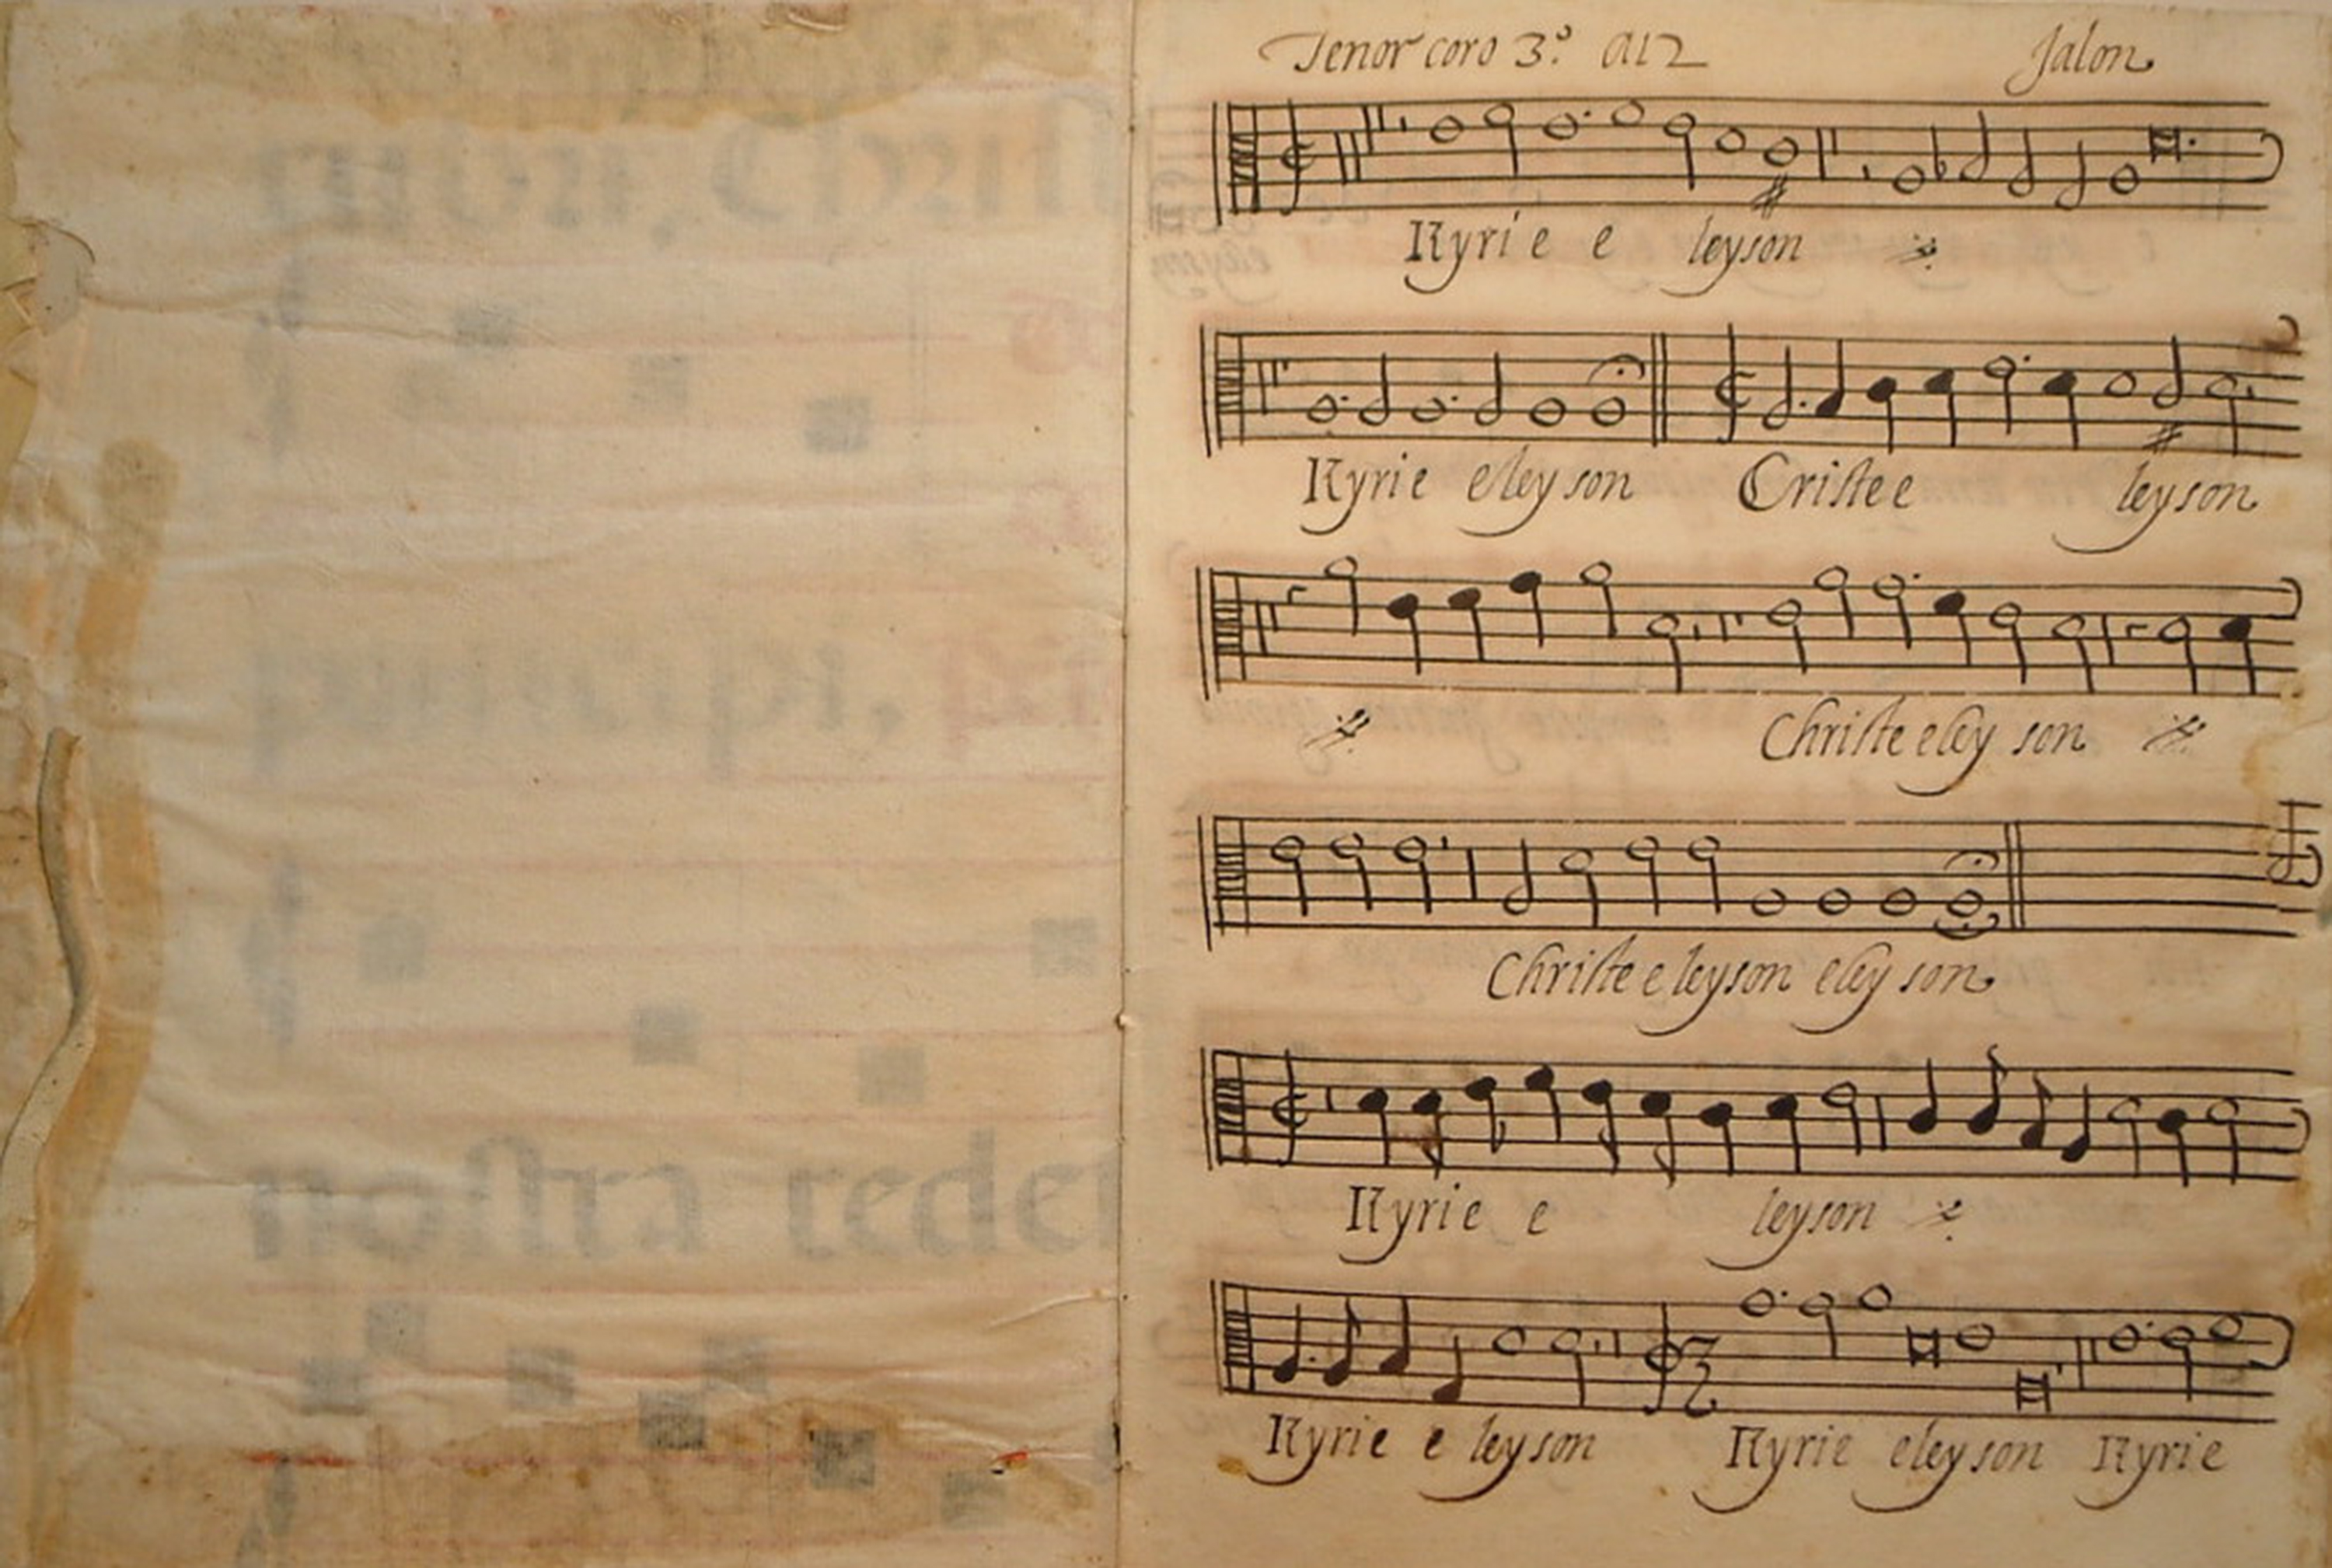 Tenor coro 3.º a12 Jalon
Kyrie e leyson
Kyrie eleyson Criste e leyson
Christe eley son
Christe eleyson eley son
Kyrie e leyson
Kyrie e leyson Kyrie eleyson Kyrie
principi,
nostra redem